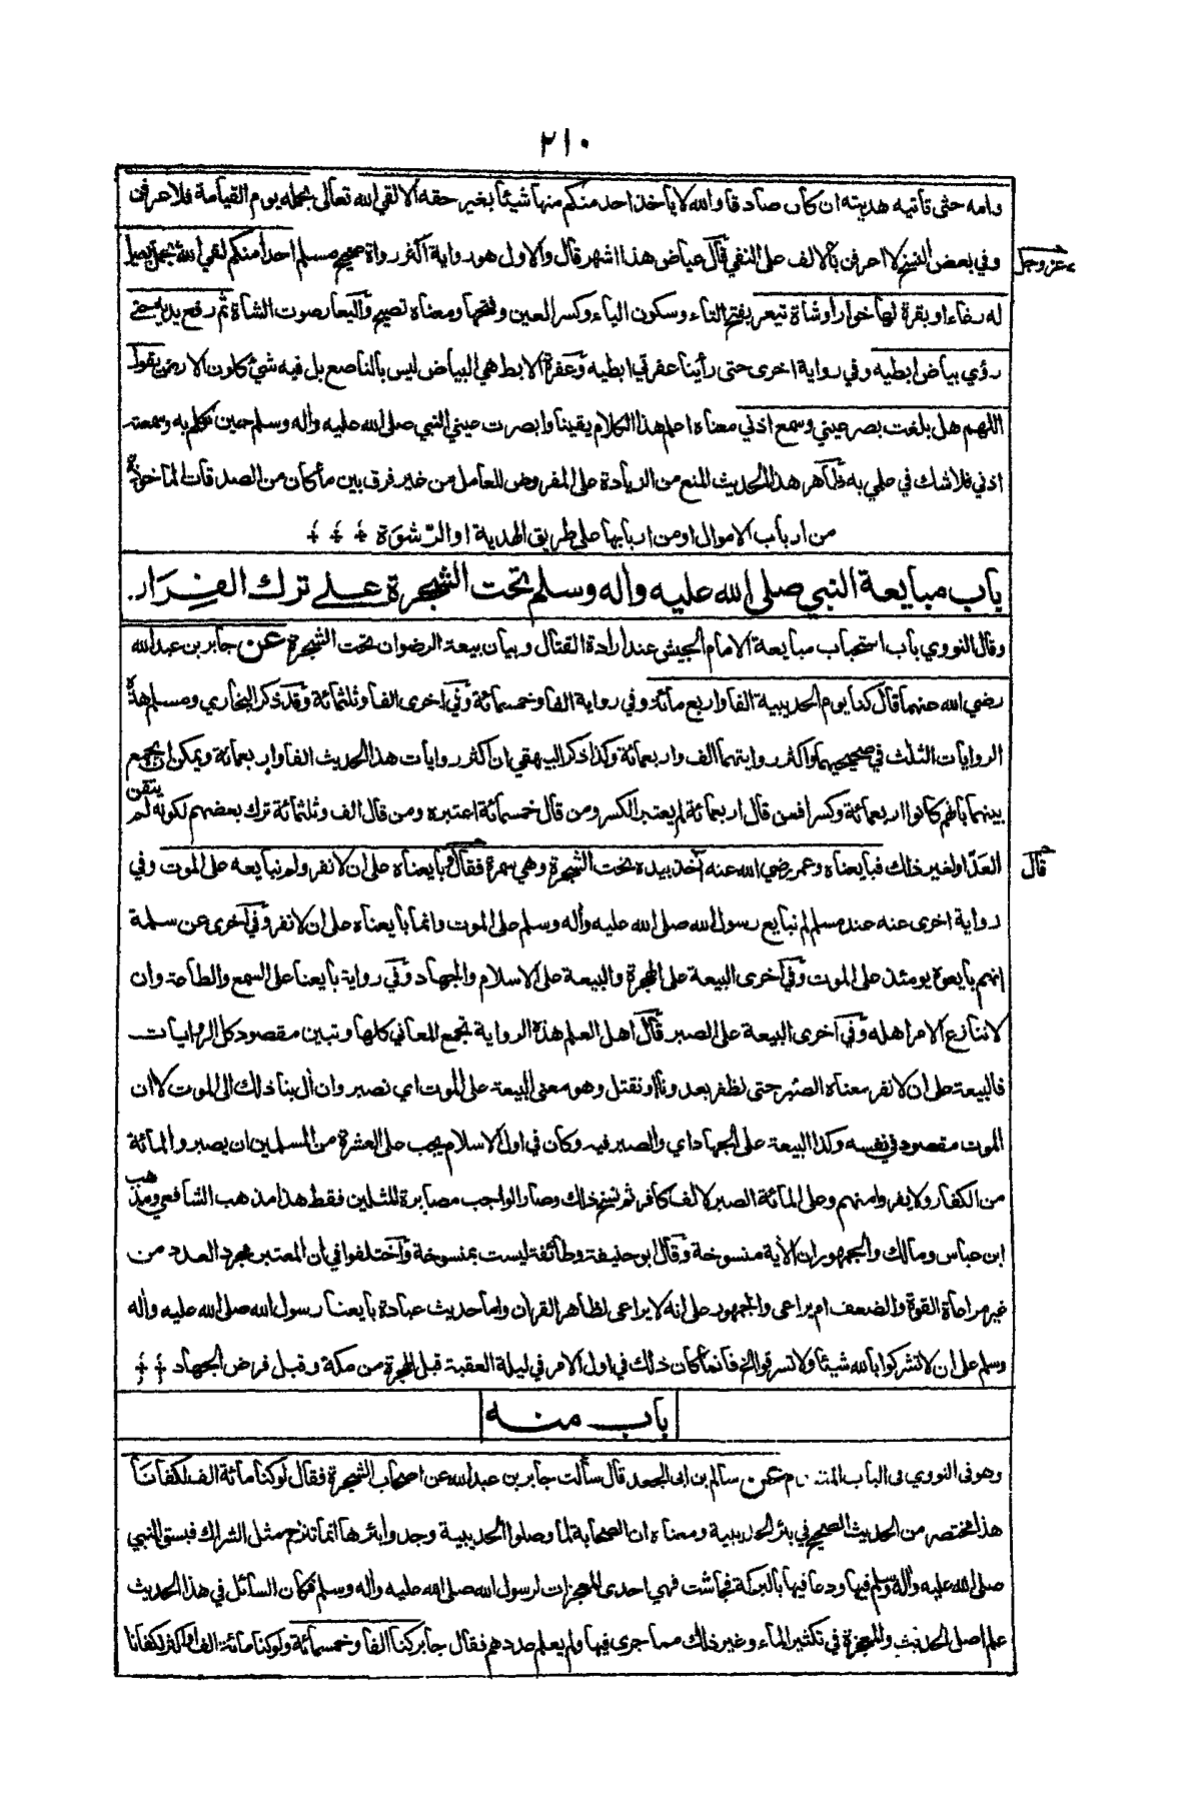 ٢١٠
وامه حتى تأتيه هديته ان كان صادقا والله لا يأخذ احد منكم منها شيئا بغير حقه الا لقي الله تعالى يحمله يوم القيامة فلاعرفن
وفي بعض النسخ لا اعرفن بالالف على النفي قال عياض هذا اشهر قال والاول هو رواية اكثر رواة صحيح مسلم احدا منكم لقي الله يحمل بعيرا
عز وجل
له رغاء او بقرة لها خوار او شاة تيعر بفتح التاء وسكون الياء وكسر العين وفتحها ومعناه تصيح واليعار صوت الشاة ثم رفع يديه حتى
رؤي بياض ابطيه وفي رواية اخرى حتى رأينا عفرتي ابطيه وعفرة الابط هي البياض ليس بالناصع بل فيه شيء كلون الارض يقول
اللهم هل بلغت بصر عيني وسمع اذني معناه اعلم هذا الكلام يقينا وابصرت عيني النبي صلى الله عليه وأله وسلم حين تكلم به وسمعته
اذني فلا شك في علمي به وظاهر هذا الحديث المنع من الزيادة على المفروض للعامل من غير فرق بين ما كان من الصدقات المأخوذة
من ارباب الاموال او من اربابها على طريق الهدية او الرّشوَة
باب مبايعة النبي صلى الله عليه وأله وسلم تحت الشجرة على ترك الفِرَار.
وقال النووي باب استحباب مبايعة الامام الجيش عند ارادة القتال وبيان بيعة الرضوان تحت الشجرة عن جابر بن عبد الله
رضي الله عنهما قال كنا يوم الحديبية الفا واربع مائة وفي رواية الفا وخمسمائة وفي اخرى الفا وثلثمائة وقد ذكر البخاري ومسلم هذه
الروايات الثلث في صحيحيهما واكثر روايتهما الف واربعمائة وكذا ذكر البيهقي ان اكثر روايات هذا الحديث الفا واربعمائة ويمكن ان يجمع
بينهما بانهم كانوا اربعمائة وكسرا فمن قال اربعمائة لم يعتبر الكسر ومن قال خمسمائة اعتبره ومن قال الف وثلثمائة ترك بعضهم لكونه لم يتقن
العَدّ او لغير ذلك فبايعناه وعمر رضي الله عنه أخذ بيده تحت الشجرة وهي سمرة فقال وبايعناه على ان لا نفر ولم نبايعه على الموت وفي
قال
رواية اخرى عنه عند مسلم لم نبايع رسول الله صلى الله عليه وأله وسلم على الموت وانما بايعناه على ان لا نفر وفي اخرى عن سلمة
انهم بايعوه يومئذ على الموت وفي اخرى البيعة على الهجرة والبيعة على الاسلام والجهاد وفي رواية بايعنا على السمع والطاعة وان
لا ننازع الامر اهله وفي اخرى البيعة على الصبر قال اهل العلم هذه الرواية تجمع المعاني كلها وتبين مقصود كل الروايات
فالبيعة على ان لا نفر معناه الصبر حتى نظفر بعدونا او نقتل وهو معنى البيعة على الموت اي نصبر وان أل بنا ذلك الى الموت لا ان
الموت مقصود في نفسه وكذا البيعة على الجهاد اي والصبر فيه وكان في اول الاسلام يجب على العشرة من المسلمين ان يصبروا لمائة
من الكفار ولا يفروا منهم وعلى المائة الصبر لالف كافر ثم نسخ ذلك وصار الواجب مصابرة المثلين فقط هذا مذهب الشافعي ومذهب
ابن عباس ومالك والجمهور ان الأية منسوخة وقال ابو حنيفة وطائفة ليست بمنسوخة واختلفوا في ان المعتبر مجرد العدد من
غير مراعاة القوة والضعف ام يراعى والجمهور على انه لا يراعى لظاهر القرأن واما حديث عبادة بايعنا رسول الله صلى الله عليه وأله
وسلم على ان لا تشركوا بالله شيئا ولا تسرقوا الخ فانما كان ذلك في اول الامر في ليلة العقبة قبل الهجرة من مكة وقبل فرض الجهاد
باب منه
وهو فى النووي فى الباب المتقدم عن سالم بن ابى الجعد قال سألت جابر بن عبد الله عن اصحاب الشجرة فقال لو كنا مائة الف لكفانا
هذا مختصر من الحديث الصحيح في بئر الحديبية ومعناه ان الصحابة لما وصلوا الحديبية وجدوا بئرها انما تنزح مثل الشراك فبسق النبي
صلى الله عليه وأله وسلم فيها ودعا فيها بالبركة فجاشت فهي احدى المعجزات لرسول الله صلى الله عليه وأله وسلم فكان السائل في هذا الحديث
علم اصل الحديث والمعجزة في تكثير الماء وغير ذلك مما جرى فيها ولم يعلم عددهم فقال جابر كنا الفا وخمسمائة ولو كنا مائة الف او اكثر لكفانا